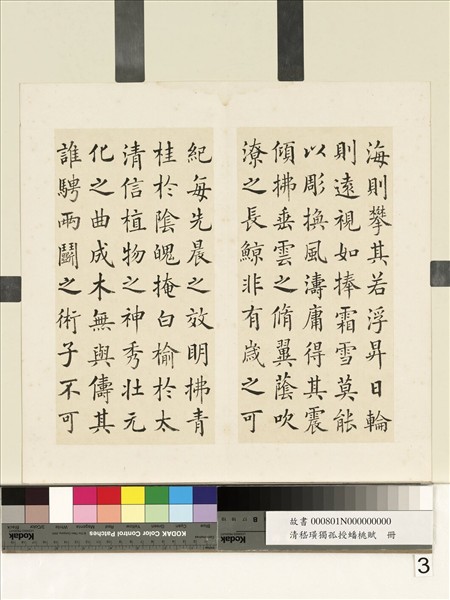 海則攀其若浮昇日輪
則遠視如捧霜雪莫能
以彫換風濤庸得其震
傾拂垂雲之脩翼蔭吹
潦之長鯨非有歲之可
紀每先晨之效明拂青
桂於陰魄掩白榆於太
清信植物之神秀壯元
化之曲成木無與儔其
誰騁兩鬭之術子不可
KODAK Color Control Patches
Kodak
故書 000801N000000000
清嵇璜獨孤授蟠桃賦 冊
3